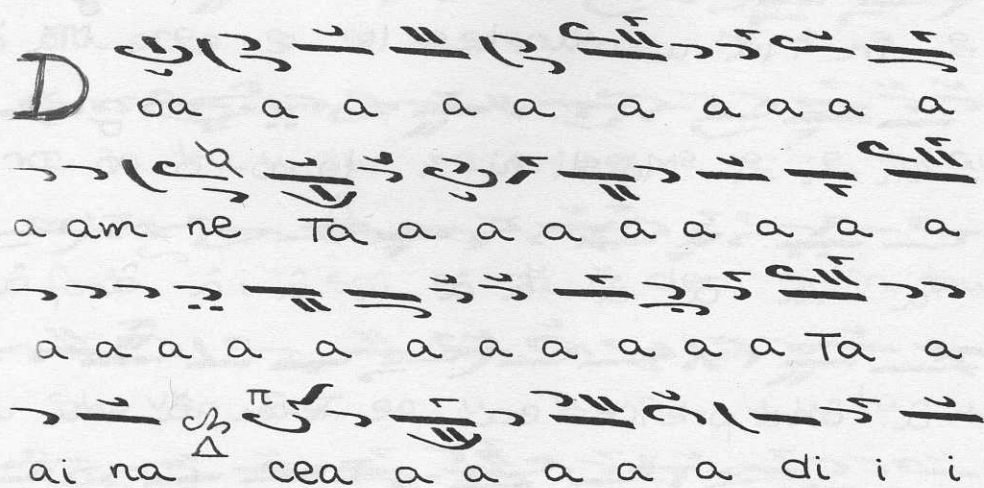 Doa a a a a a a a a a
a am ne Ta a a a a a a a a
a a a a a a a a a a a Ta a
π Δ
ai na cea a a a a a di i i